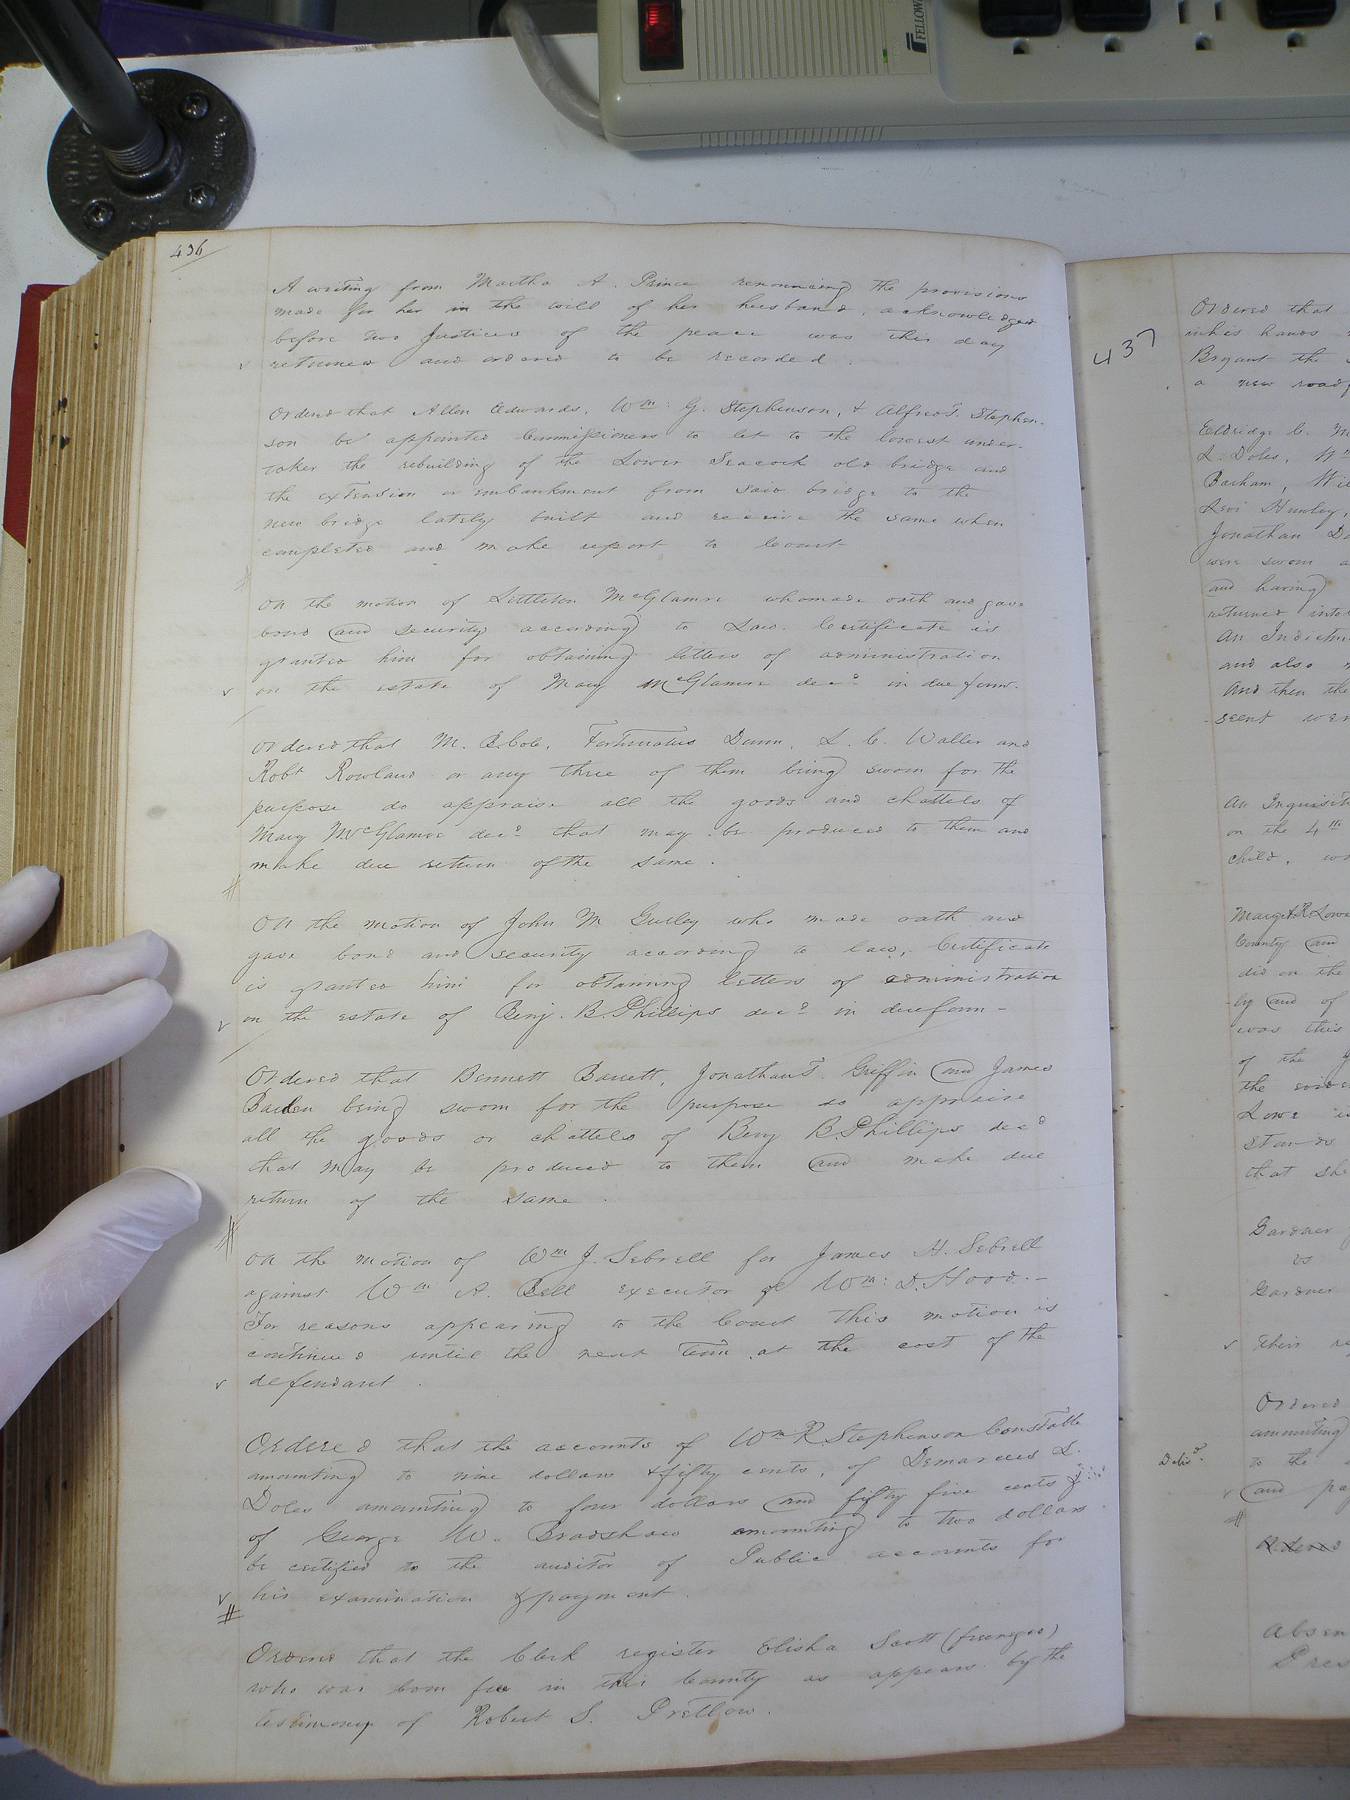 436
A writing from Martha A. Prince renouncing the provisions
made for her in the will of her husband, acknowledged
before two Justices of the peace was this day
returned and ordered to be recorded.
Ordered that Allen Edwards, Wm. G. Stephenson, & Alfred T. Stephen-
son be appointed Commissioners to let to the lowest under-
taker the rebuilding of the Lower Seacock old bridge and
the extension or embankment from said bridge to the
new bridge lately built and receive the same when
completed and make report to Court
On the motion of Littleton McGlamre who made oath and gave
bond and security according to Law. Certificate is
granted him for obtaining letters of administration
on the estate of Mary McGlamre decd in due form.
Ordered that M. B. Cob, Fortunatus Dunn, L. C. Waller and
Robt Rowland or any three of them being sworn for the
purpose do appraise all the goods and chattels of
Mary McGlamre decd that may be produced to them and
make due return of the same.
On the motion of John M Gurley who made oath and
gave bond and security according to law, Certificate
is granted him for obtaining letters of administration
on the estate of Benj. B. Phillips decd in due form -
Ordered that Bennett Barrett, Jonathan T. Griffin and James
Barden being sworn for the purpose do appraise
all the goods or chattels of Benj B. Phillips decd
that may be produced to them and make due
return of the same.
#
On the motion of Wm J. Sebrell for James H. Sebrell
against Wm A. Bell executor of Wm: D. Hood. -
For reasons appearing to the Court this motion is
continued until the next Term at the cost of the
defendant.
Ordered that the accounts of Wm R. Stephenson Constable
amounting to nine dollars & fifty cents, of Demarcus L.
Doles amounting to four dollars and fifty five cents &
of George W. Bradshaw amounting to two dollars
be certified to the auditor of Public accounts for
his examination & payment.
#
Ordered that the Clerk register Elisha Scott (free negro)
who was born free in this County as appears by the
testimony of Robert S. Pretlow.
437
Ordered that
in his hands
Bryant the
a new road
Eldridge C.
L. Doles,
Barham,
Levi Hunley,
Jonathan
were sworn
and having
returned into
An Indictm
and also
And then the
sent wer
An Inquisit
on the 4th
child,
Marget R. Lowe
County and
did on the
by and of
was this
of the
the evide
Lowe is
Stands
that she
Gardner
vs
Gardner
their re
Ordered
amounting
to the
and pa
Absen
Pres
FELLOWES